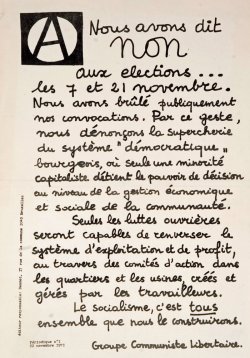 A
Nous avons dit
NON
aux elections...
les 7 et 21 novembre.
Nous avons brûlé publiquement
nos convocations. Par ce geste,
nous dénonçons la supercherie
du système "démocratique"
bourgeois, où seule une minorité
capitaliste détient le pouvoir de décision
au niveau de la gestion économique
et sociale de la communauté.
Seules les luttes ouvrières
seront capables de renverser le
système d'exploitation et de profit,
au travers des comités d'action dans
les quartiers et les usines, créés et
gérés par les travailleurs.
Le socialisme, c'est tous
ensemble que nous le construirons.
Groupe Communiste Libertaire.
périodique n°1
22 novembre 1971
rue de la commune Bruxelles